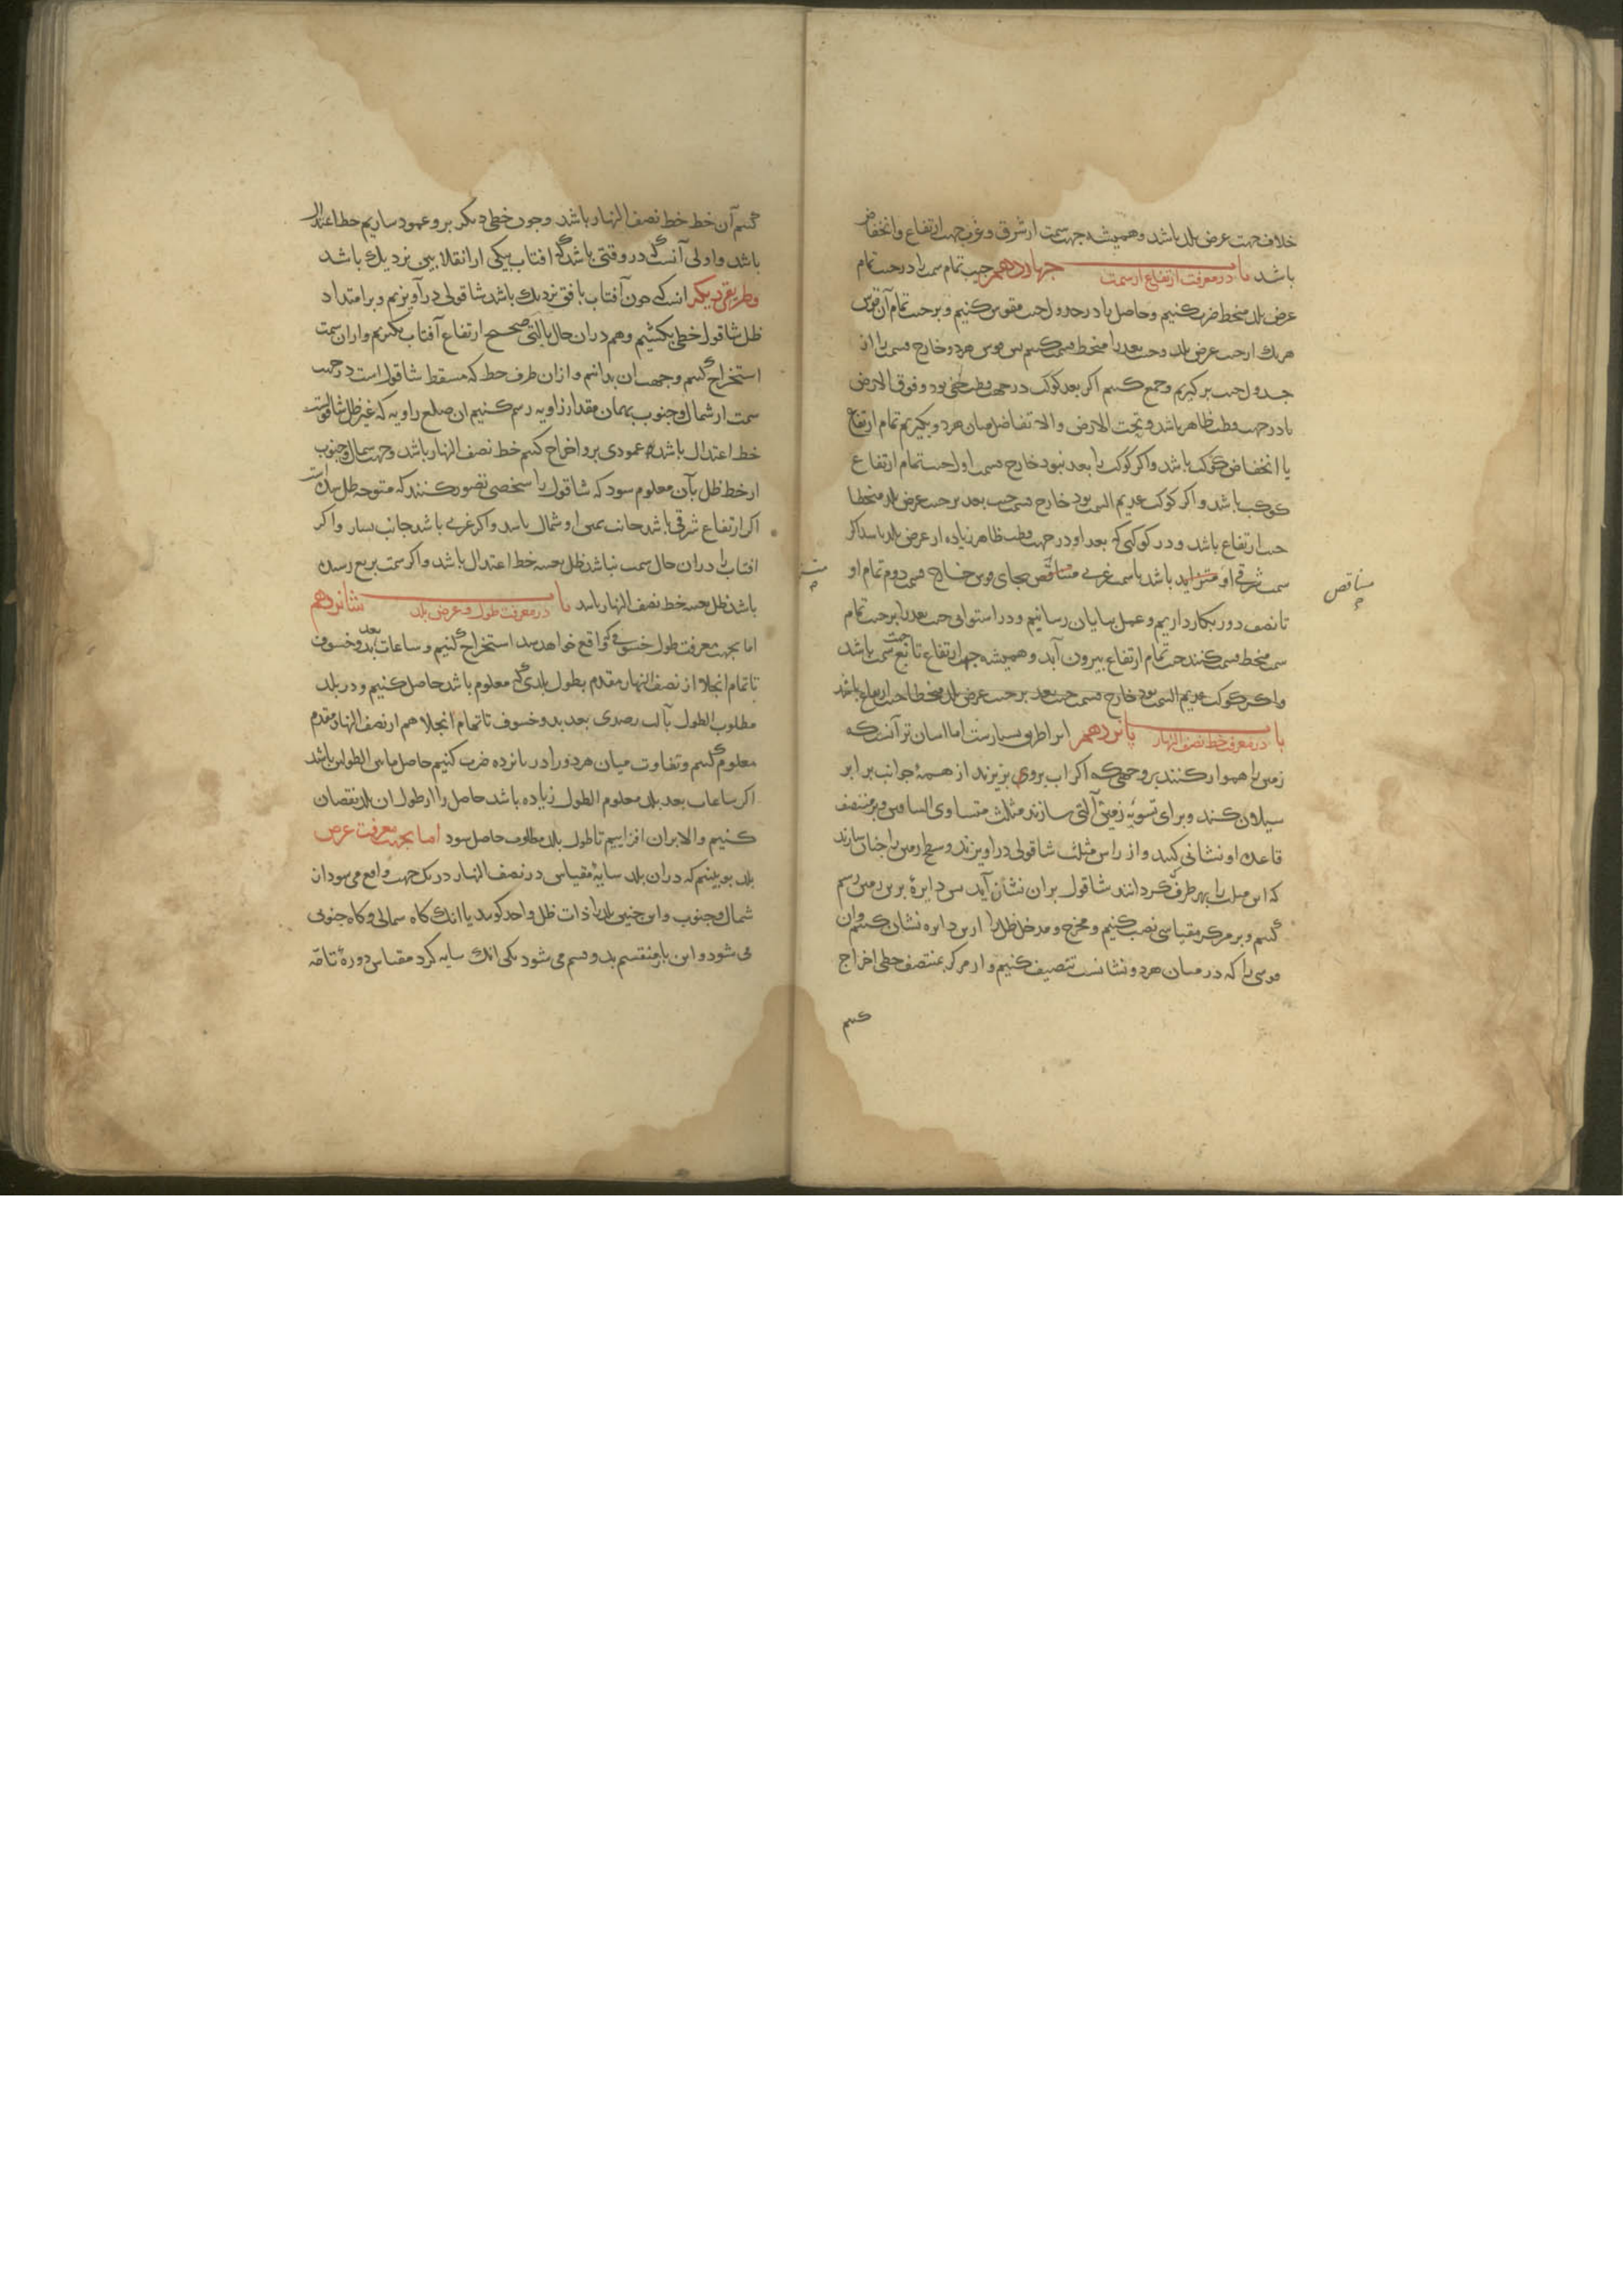 خلاف جهت عرض بلد باشد و همیشه جهت سمت از شرق و غرب جهت ارتفاع و انخفاض
باشد باب چهاردهم در معرفت ارتفاع از سمت جیب تمام سمت را در جیب تمام
عرض بلد منحط ضرب کنیم و حاصل را در جدول جیب مقوس کنیم و بر جیب تمام آن قوس
هریک از جیب عرض بلد و جیب بعد را منحط قسمت کنیم پس قوس هر دو خارج قسمت را از
جدول جیب برگیریم و جمع کنیم اگر بعد کوکب در جهت قطب خفی بود و فوق الارض
یا در جهت قطب ظاهر باشد و تحت الارض و الا تفاضل میان هر دو بگیریم تمام ارتفاع
یا انخفاض کوکب باشد و اگر کوکب را بعد نبود خارج قسمت اول جیب تمام ارتفاع
کوکب باشد و اگر کوکب عدیم السمت بود خارج قسمت جیب بعد بر جیب عرض بلد منحطا
جیب ارتفاع باشد و در کوکبی که بعد او در جهت قطب ظاهر زیاده از عرض بلد باشد اگر
سمت شرقی او متزاید باشد یا سمت غربی متناقص بجای قوس خارج قسمت دوم تمام او
متناقص
تا نصف دور بکار داریم و عمل بپایان رسانیم و در استوائی جیب بعد را بر جیب تمام
سمت منحط قسمت کنند جیب تمام ارتفاع بیرون آید و همیشه جهت ارتفاع تابع جهت سمت باشد
و اگر کوکب عدیم السمت بود خارج قسمت جیب بعد بر جیب عرض بلد منحطا جیب ارتفاع باشد
باب پانزدهم در معرفت خط نصف النهار این را طرق بسیارست اما آسان تر آنست که
زمین را هموار کنند بر وجهی که اگر آب بر وی بریزند از همهٔ جوانب برابر
سیلان کند و برای تسویه زمین آلتی سازند مثلث متساوی الساقین و بر منتصف
قاعده او نشانی کنند و از راس مثلث شاقولی در آویزند و سطح زمین را چنان سازند
که این مثلث را بهر طرف که گردانند شاقول بران نشان آید پس دایرهٔ برین زمین رسم
کنیم و بر مرکز مقیاسی نصب کنیم و مخرج و مدخل ظل را ازین دایره نشان کنیم و آن
قوسی را که در میان هر دو نشانست تنصیف کنیم و از مرکز بمنتصف خطی اخراج
کنیم
کنیم آن خط خط نصف النهار باشد و چون خطی دیگر برو عمود سازیم خط اعتدال
باشد و اولی آنست که در وقتی باشد که افتاب بیکی از انقلابین نزدیک باشد
و طریقی دیگر آنست که چون آفتاب بافق نزدیک باشد شاقولی در آویزیم و بر امتداد
ظل شاقول خطی بکشیم و هم دران حال بآلتی صحیح ارتفاع آفتاب بگیریم و ازان سمت
استخراج کنیم و جهت ان بدانیم و ازان طرف خط که مسقط شاقول است در جهت
سمت از شمال و جنوب بهمان مقدار زاویه رسم کنیم ان ضلع زاویه که غیر ظل شاقولست
خط اعتدال باشد و عمودی برو اخراج کنیم خط نصف النهار باشد و جهت شمال و جنوب
از خط ظل بآن معلوم شود که شاقول را شخصی تصور کنند که متوجه ظل است
اگر ارتفاع شرقی باشد جانب یمین او شمال باشد و اگر غربی باشد جانب یسار و اگر
افتاب را دران حال سمت نباشد ظل بعینه خط اعتدال باشد و اگر سمت بربع رسیده
باشد ظل بعینه خط نصف النهار باشد باب شانزدهم در معرفت طول و عرض بلد
اما بجهت معرفت طول خسوفی که واقع خواهد شد استخراج کنیم و ساعات بعد بدو خسوف
تا تمام انجلا از نصف النهار مقدم بطول بلدی که معلوم باشد حاصل کنیم و در بلد
مطلوب الطول بآلت رصدی بعد بدو خسوف تا تمام انجلا هم از نصف النهار مقدم
معلوم کنیم و تفاوت میان هر دو را در پانزده ضرب کنیم حاصل ما بین الطولین باشد
اگر ساعات بعد بلد معلوم الطول زیاده باشد حاصل را از طول ان بلد نقصان
کنیم و الا بران افزاییم تا طول بلد مطلوب حاصل شود اما بجهت معرفت عرض
بلد ببینیم که دران بلد سایهٔ مقیاس در نصف النهار در یک جهت واقع می شود از
شمال و جنوب و این چنین بلد را ذات ظل واحد گویند یا انک گاه شمالی و گاه جنوبی
می شود و این باز منقسم بدو قسم می شود یکی انک سایه گرد مقیاس دورهٔ تامه